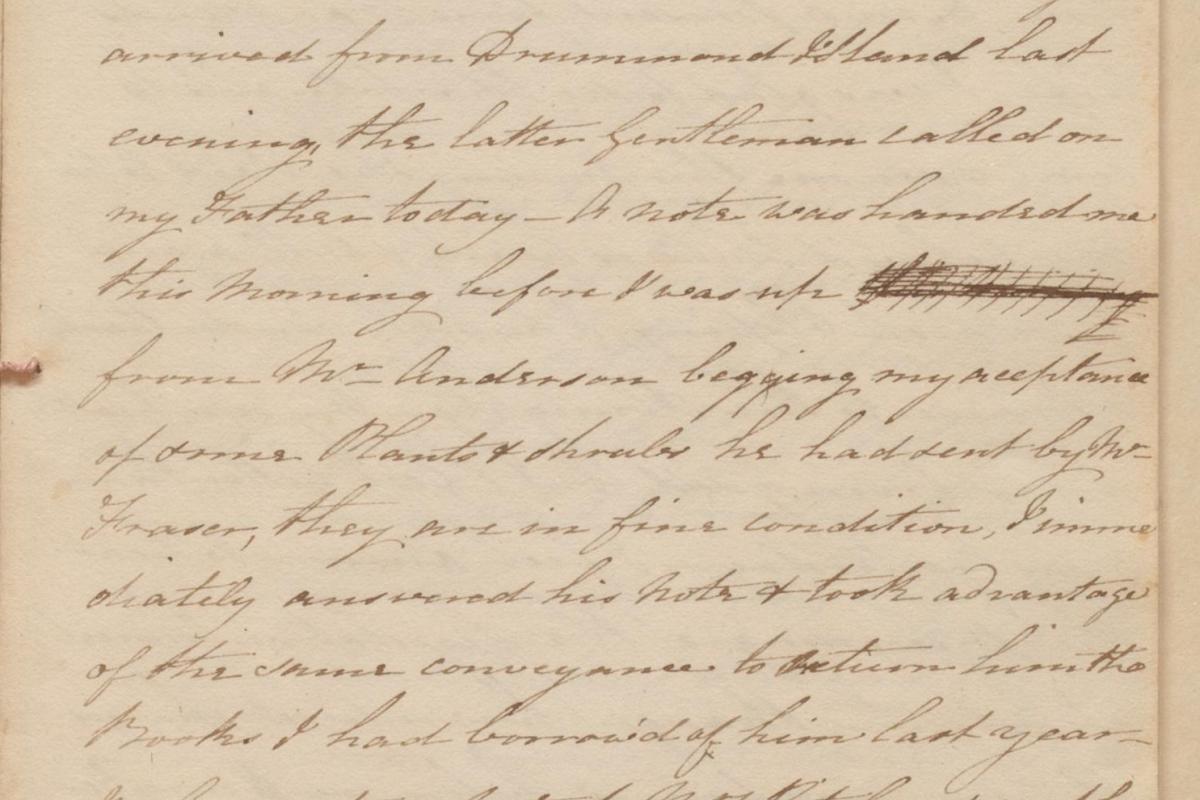 arrived from Drummond Island last
evening, the latter Gentleman called on
my Father today – A note was handed me
this Morning before I was up
from Mr Anderson begging my aceptance
of some Plants & shrubs he had sent by Mr
Fraser, they are in fine condition, I imme
diately answered his Note & took advantage
of the same conveyance to return him the
Books I had borrow'd of him last year –